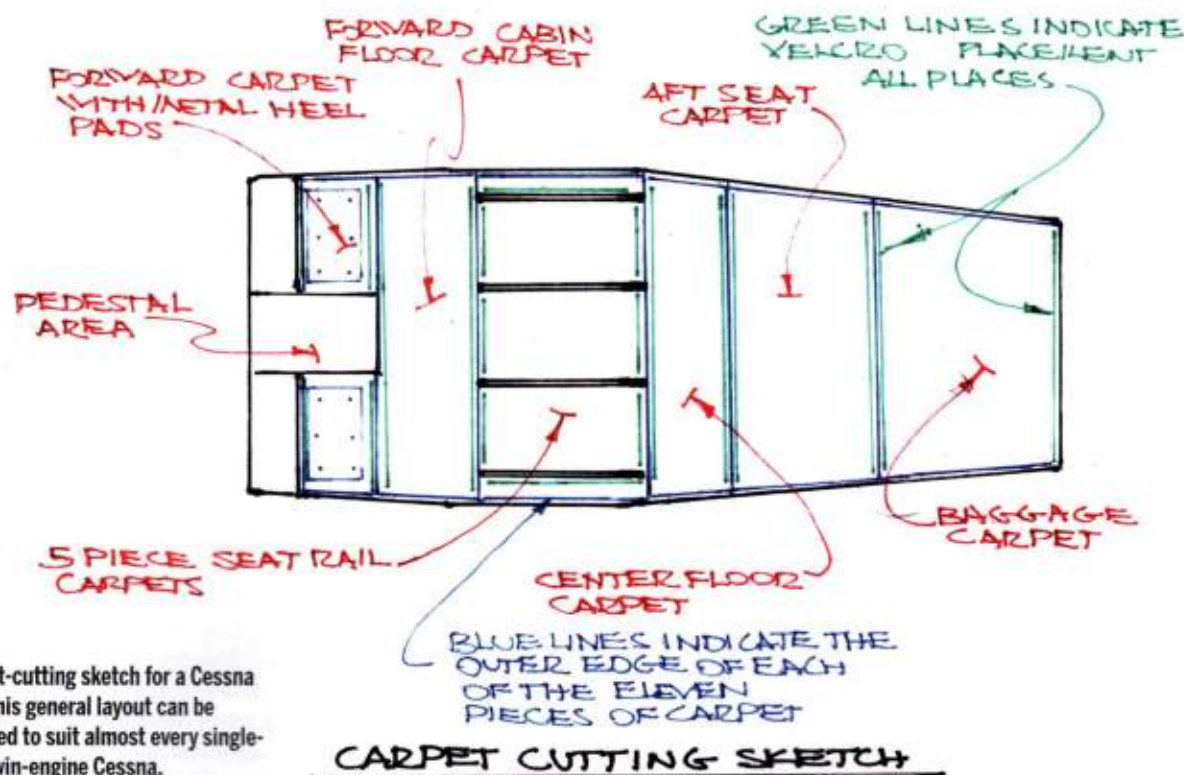 FORWARD CABIN
FLOOR CARPET
GREEN LINES INDICATE
VELCRO PLACEMENT
ALL PLACES
FORWARD CARPET
WITH METAL HEEL
PADS
AFT SEAT
CARPET
PEDESTAL
AREA
5 PIECE SEAT RAIL
CARPETS
CENTER FLOOR
CARPET
BAGGAGE
CARPET
BLUE LINES INDICATE THE
OUTER EDGE OF EACH
OF THE ELEVEN
PIECES OF CARPET
t-cutting sketch for a Cessna
his general layout can be
ed to suit almost every single-
win-engine Cessna.
CARPET CUTTING SKETCH